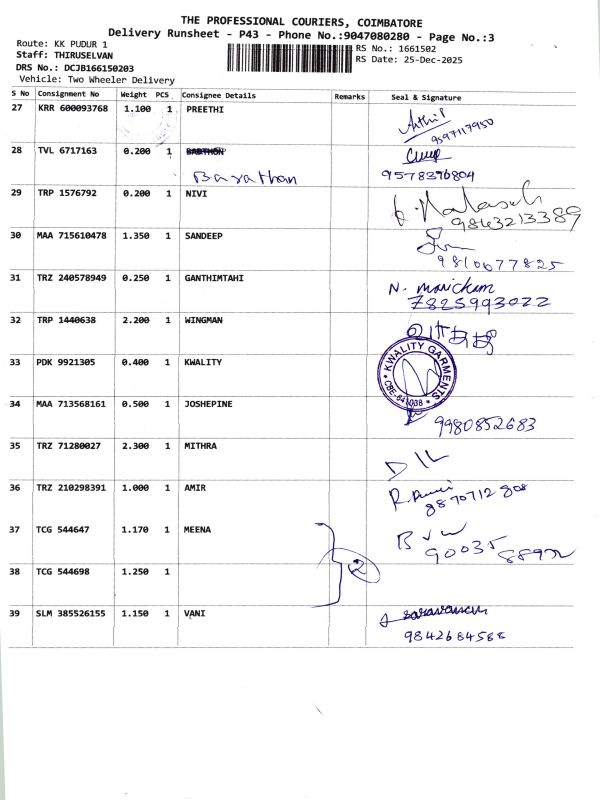 THE PROFESSIONAL COURIERS, COIMBATORE
Delivery Runsheet - P43 - Phone No.:9047080280 - Page No.:3
Route: KK PUDUR 1
RS No.: 1661502
Staff: THIRUSELVAN
RS Date: 25-Dec-2025
DRS No.: DCJB166150203
Vehicle: Two Wheeler Delivery
S No Consignment No Weight PCS Consignee Details Remarks Seal & Signature
27 KRR 600093768 1.100 1 PREETHI
9597117950
28 TVL 6717163 0.200 1
Barathan 9578396804
29 TRP 1576792 0.200 1 NIVI
9843213389
30 MAA 715610478 1.350 1 SANDEEP
9810677825
31 TRZ 240578949 0.250 1 GANTHIMTAHI
N. manickam
7825993022
32 TRP 1440638 2.200 1 WINGMAN
33 PDK 9921305 0.400 1 KWALITY
* KWALITY GARMENTS * CBE-641038
34 MAA 713568161 0.500 1 JOSHEPINE
9980852683
35 TRZ 71280027 2.300 1 MITHRA
36 TRZ 210298391 1.000 1 AMIR
8870712808
37 TCG 544647 1.170 1 MEENA
2
38 TCG 544698 1.250 1
39 SLM 385526155 1.150 1 VANI
saravanan
9842684588